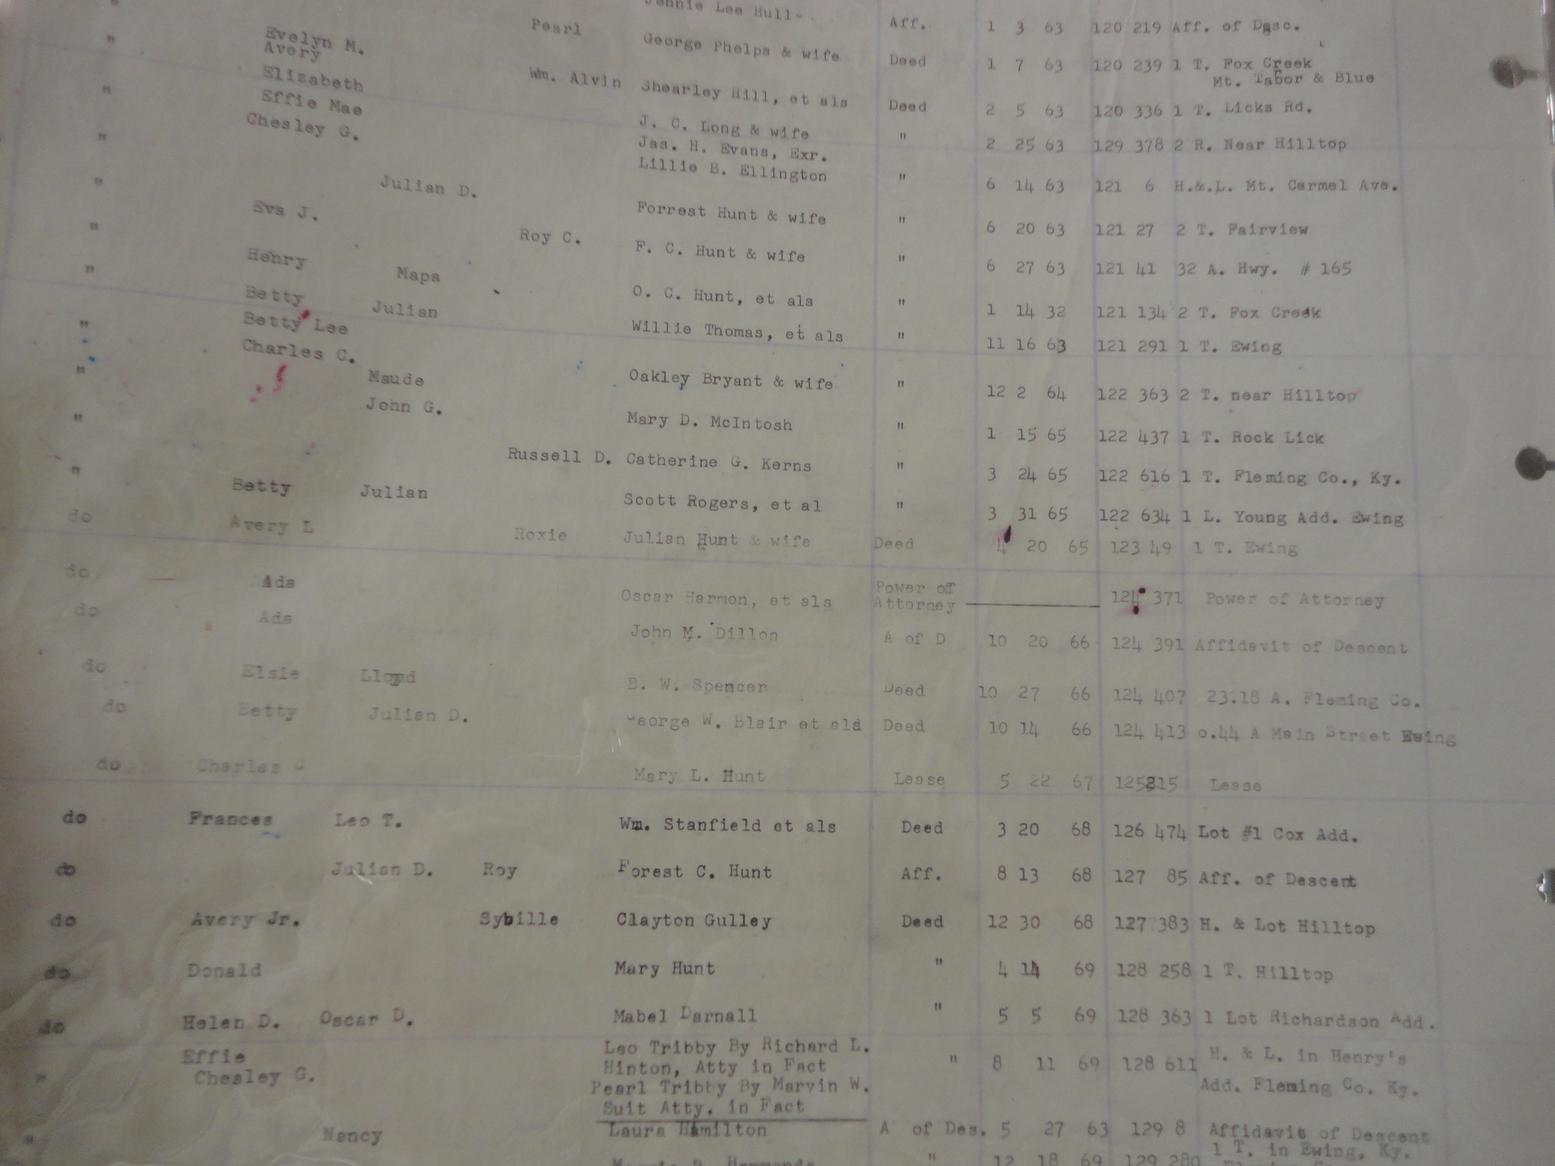 Jennie Lee Hull- Aff. 1 3 63 120 219 Aff. of Desc.
" Evelyn M. Pearl George Phelps & wife Deed 1 7 63 120 239 1 T. Fox Creek
Avery Mt. Tabor & Blue
" Elizabeth Wm. Alvin Shearley Hill, et als Deed 2 5 63 120 336 1 T. Licks Rd.
Effie Mae
" Chesley G. J. C. Long & wife " 2 25 63 129 378 2 R. Near Hilltop
Jas. H. Evans, Exr.
" Julian D. Lillie B. Ellington " 6 14 63 121 6 H.&.L. Mt. Carmel Ave.
" Eva J. Forrest Hunt & wife " 6 20 63 121 27 2 T. Fairview
Roy C. F. C. Hunt & wife " 6 27 63 121 41 32 A. Hwy. # 165
" Henry Mapa O. C. Hunt, et als " 1 14 32 121 134 2 T. Fox Creek
Betty Julian Willie Thomas, et als " 11 16 63 121 291 1 T. Ewing
" Betty Lee
Charles C.
" Maude Oakley Bryant & wife " 12 2 64 122 363 2 T. near Hilltop
" John G. Mary D. McIntosh " 1 15 65 122 437 1 T. Rock Lick
" Russell D. Catherine G. Kerns " 3 24 65 122 616 1 T. Fleming Co., Ky.
Betty Julian Scott Rogers, et al " 3 31 65 122 634 1 L. Young Add. Ewing
do Avery L Roxie Julian Hunt & wife Deed 4 20 65 123 49 1 T. Ewing
do Ads Oscar Harmon, et als Power of
Attorney 124 371 Power of Attorney
do Ads John M. Dillon A of D 10 20 66 124 391 Affidavit of Descent
do Elsie Lloyd B. W. Spencer Deed 10 27 66 124 407 23.18 A. Fleming Co.
do Betty Julian D. George W. Blair et als Deed 10 14 66 124 413 0.44 A Main Street Ewing
do Charles C Mary L. Hunt Lease 5 22 67 125 215 Lease
do Frances Leo T. Wm. Stanfield et als Deed 3 20 68 126 474 Lot #1 Cox Add.
do Julian D. Roy Forest C. Hunt Aff. 8 13 68 127 85 Aff. of Descent
do Avery Jr. Sybille Clayton Gulley Deed 12 30 68 127 383 H. & Lot Hilltop
do Donald Mary Hunt " 4 14 69 128 258 1 T. Hilltop
do Helen D. Oscar D. Mabel Darnall " 5 5 69 128 363 1 Lot Richardson Add.
Effie Leo Tribby By Richard L.
" Chesley G. Hinton, Atty in Fact " 8 11 69 128 611 H. & L. in Henry's
Pearl Tribby By Marvin W. Add. Fleming Co. Ky.
Suit Atty. in Fact
" Nancy Laura Hamilton A of Des. 5 27 63 129 8 Affidavit of Descent
" 12 18 69 129 280 1 T. in Ewing, Ky.